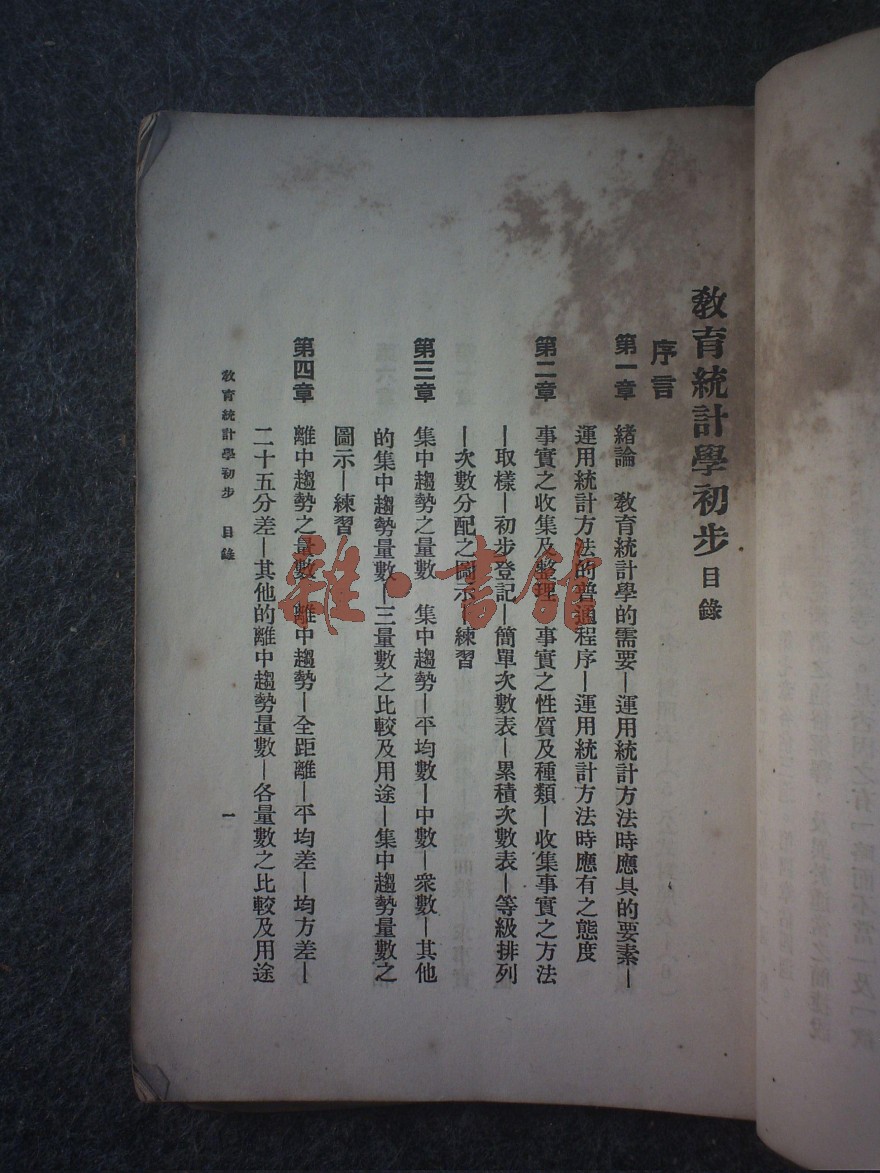 教育統計學初步 目錄
序言
第一章 緒論 教育統計學的需要—運用統計方法時應具的要素—
運用統計方法的普通程序—運用統計方法時應有之態度
第二章 事實之收集及整理 事實之性質及種類—收集事實之方法
—取樣—初步登記—簡單次數表—累積次數表—等級排列
—次數分配之圖示—練習
第三章 集中趨勢之量數 集中趨勢—平均數—中數—衆數—其他
的集中趨勢量數—三量數之比較及用途—集中趨勢量數之
圖示—練習
第四章 離中趨勢之量數 離中趨勢—全距離—平均差—均方差—
二十五分差—其他的離中趨勢量數—各量數之比較及用途
教育統計學初步 目錄
一
雜·書館